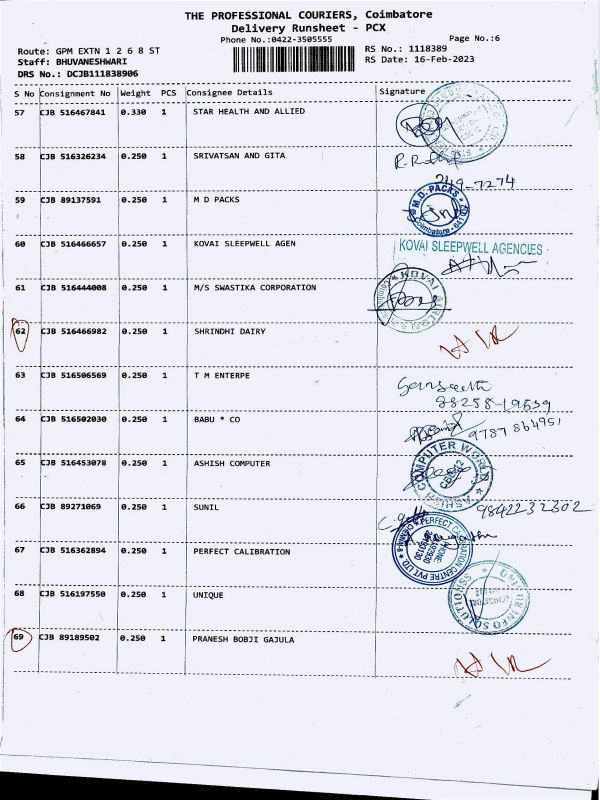 THE PROFESSIONAL COURIERS, Coimbatore
Delivery Runsheet - PCX
Phone No.:0422-3505555
Page No.:6
Route: GPM EXTN 1 2 6 8 ST
RS No.: 1118389
Staff: BHUVANESHWARI
RS Date: 16-Feb-2023
DRS No.: DCJB111838906
S No Consignment No Weight PCS Consignee Details Signature
57 CJB 516467841 0.330 1 STAR HEALTH AND ALLIED
58 CJB 516326234 0.250 1 SRIVATSAN AND GITA
249-7274
59 CJB 89137591 0.250 1 M D PACKS
M.D. PACKS
Coimbatore - 641
60 CJB 516466657 0.250 1 KOVAI SLEEPWELL AGEN
KOVAI SLEEPWELL AGENCIES
61 CJB 516444008 0.250 1 M/S SWASTIKA CORPORATION
KOVAI
62 CJB 516466982 0.250 1 SHRINDHI DAIRY
63 CJB 516506569 0.250 1 T M ENTERPE
88258-19539
64 CJB 516502030 0.250 1 BABU * CO
9787864951
65 CJB 516453078 0.250 1 ASHISH COMPUTER
ASHISH COMPUTER WORLD
66 CJB 89271069 0.250 1 SUNIL
9842232302
67 CJB 516362894 0.250 1 PERFECT CALIBRATION
PERFECT CALIBRATION CENTRE PVT LTD
PHONE:
68 CJB 516197550 0.250 1 UNIQUE
69 CJB 89189502 0.250 1 PRANESH BOBJI GAJULA